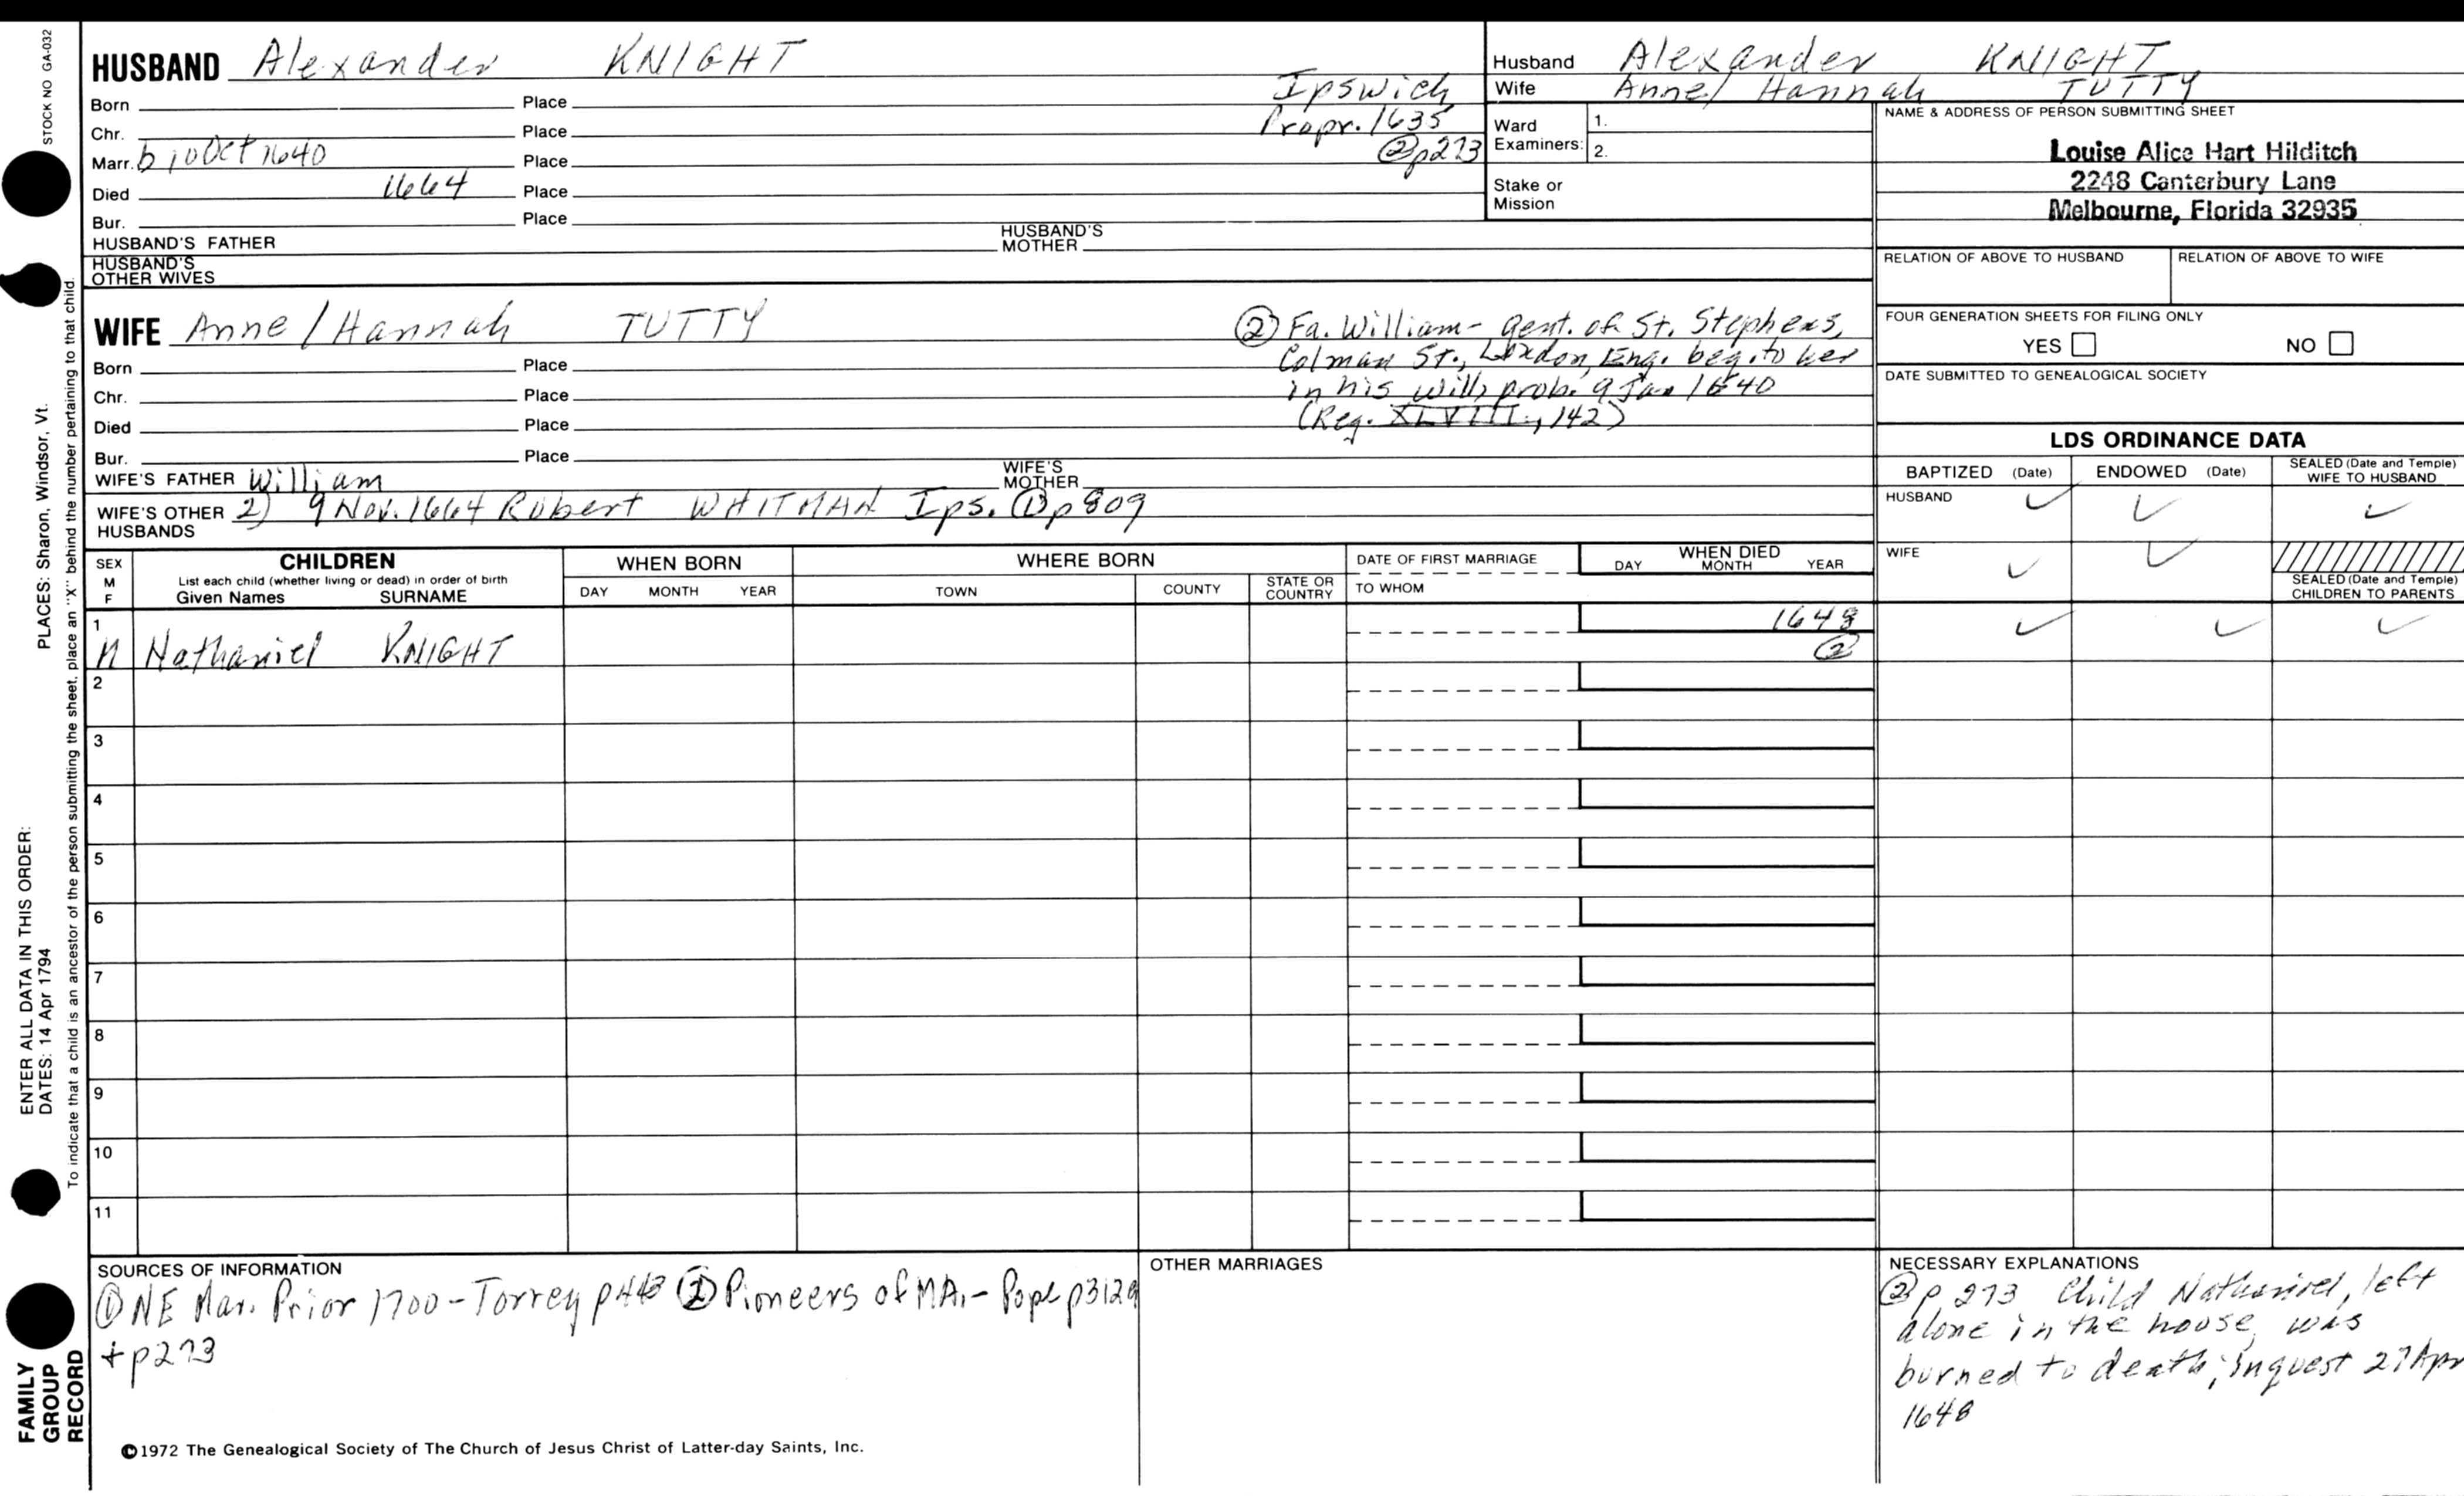 STOCK NO GA-032
HUSBAND Alexander KNIGHT
Born Place Ipswich
Chr. Place Propr. 1635
Marr. b 10 Oct 1640 Place ② p273
Died 1664 Place
Bur. Place
HUSBAND'S FATHER HUSBAND'S MOTHER
HUSBAND'S OTHER WIVES
Husband Alexander KNIGHT
Wife Anne/ Hannah TUTTY
Ward Examiners: 1.
2.
Stake or Mission
NAME & ADDRESS OF PERSON SUBMITTING SHEET
Louise Alice Hart Hilditch
2248 Canterbury Lane
Melbourne, Florida 32935
RELATION OF ABOVE TO HUSBAND RELATION OF ABOVE TO WIFE
FOUR GENERATION SHEETS FOR FILING ONLY
YES NO
DATE SUBMITTED TO GENEALOGICAL SOCIETY
WIFE Anne/Hannah TUTTY
Born Place
Chr. Place
Died Place
Bur. Place
② Fa. William - gent. of St. Stephens,
Colman St., London, Eng. beq. to her
in his will, prob. 9 Jan 1640
(Reg. XLVIII, 142)
WIFE'S FATHER William WIFE'S MOTHER
WIFE'S OTHER HUSBANDS 2) 9 Nov. 1664 Robert WHITMAN Ips. ① p809
LDS ORDINANCE DATA
BAPTIZED (Date) ENDOWED (Date) SEALED (Date and Temple) WIFE TO HUSBAND
HUSBAND ✓ ✓ ✓
WIFE ✓ ✓
SEALED (Date and Temple) CHILDREN TO PARENTS
SEX M F
CHILDREN
List each child (whether living or dead) in order of birth
Given Names SURNAME
WHEN BORN
DAY MONTH YEAR
WHERE BORN
TOWN COUNTY STATE OR COUNTRY
DATE OF FIRST MARRIAGE
TO WHOM
WHEN DIED
DAY MONTH YEAR
1 M Nathaniel KNIGHT 1648 ② ✓ ✓ ✓
2
3
4
5
6
7
8
9
10
11
SOURCES OF INFORMATION
① NE Mar. Prior 1700 - Torrey p443 ② Pioneers of MA. - Pope p312a
+ p273
OTHER MARRIAGES
NECESSARY EXPLANATIONS
② p 273 Child Nathaniel, left
alone in the house, was
burned to death; Inquest 27 Apr
1648
©1972 The Genealogical Society of The Church of Jesus Christ of Latter-day Saints, Inc.
ENTER ALL DATA IN THIS ORDER:
DATES: 14 Apr 1794 PLACES: Sharon, Windsor, Vt.
To indicate that a child is an ancestor of the person submitting the sheet, place an "X" behind the number pertaining to that child.
FAMILY
GROUP
RECORD